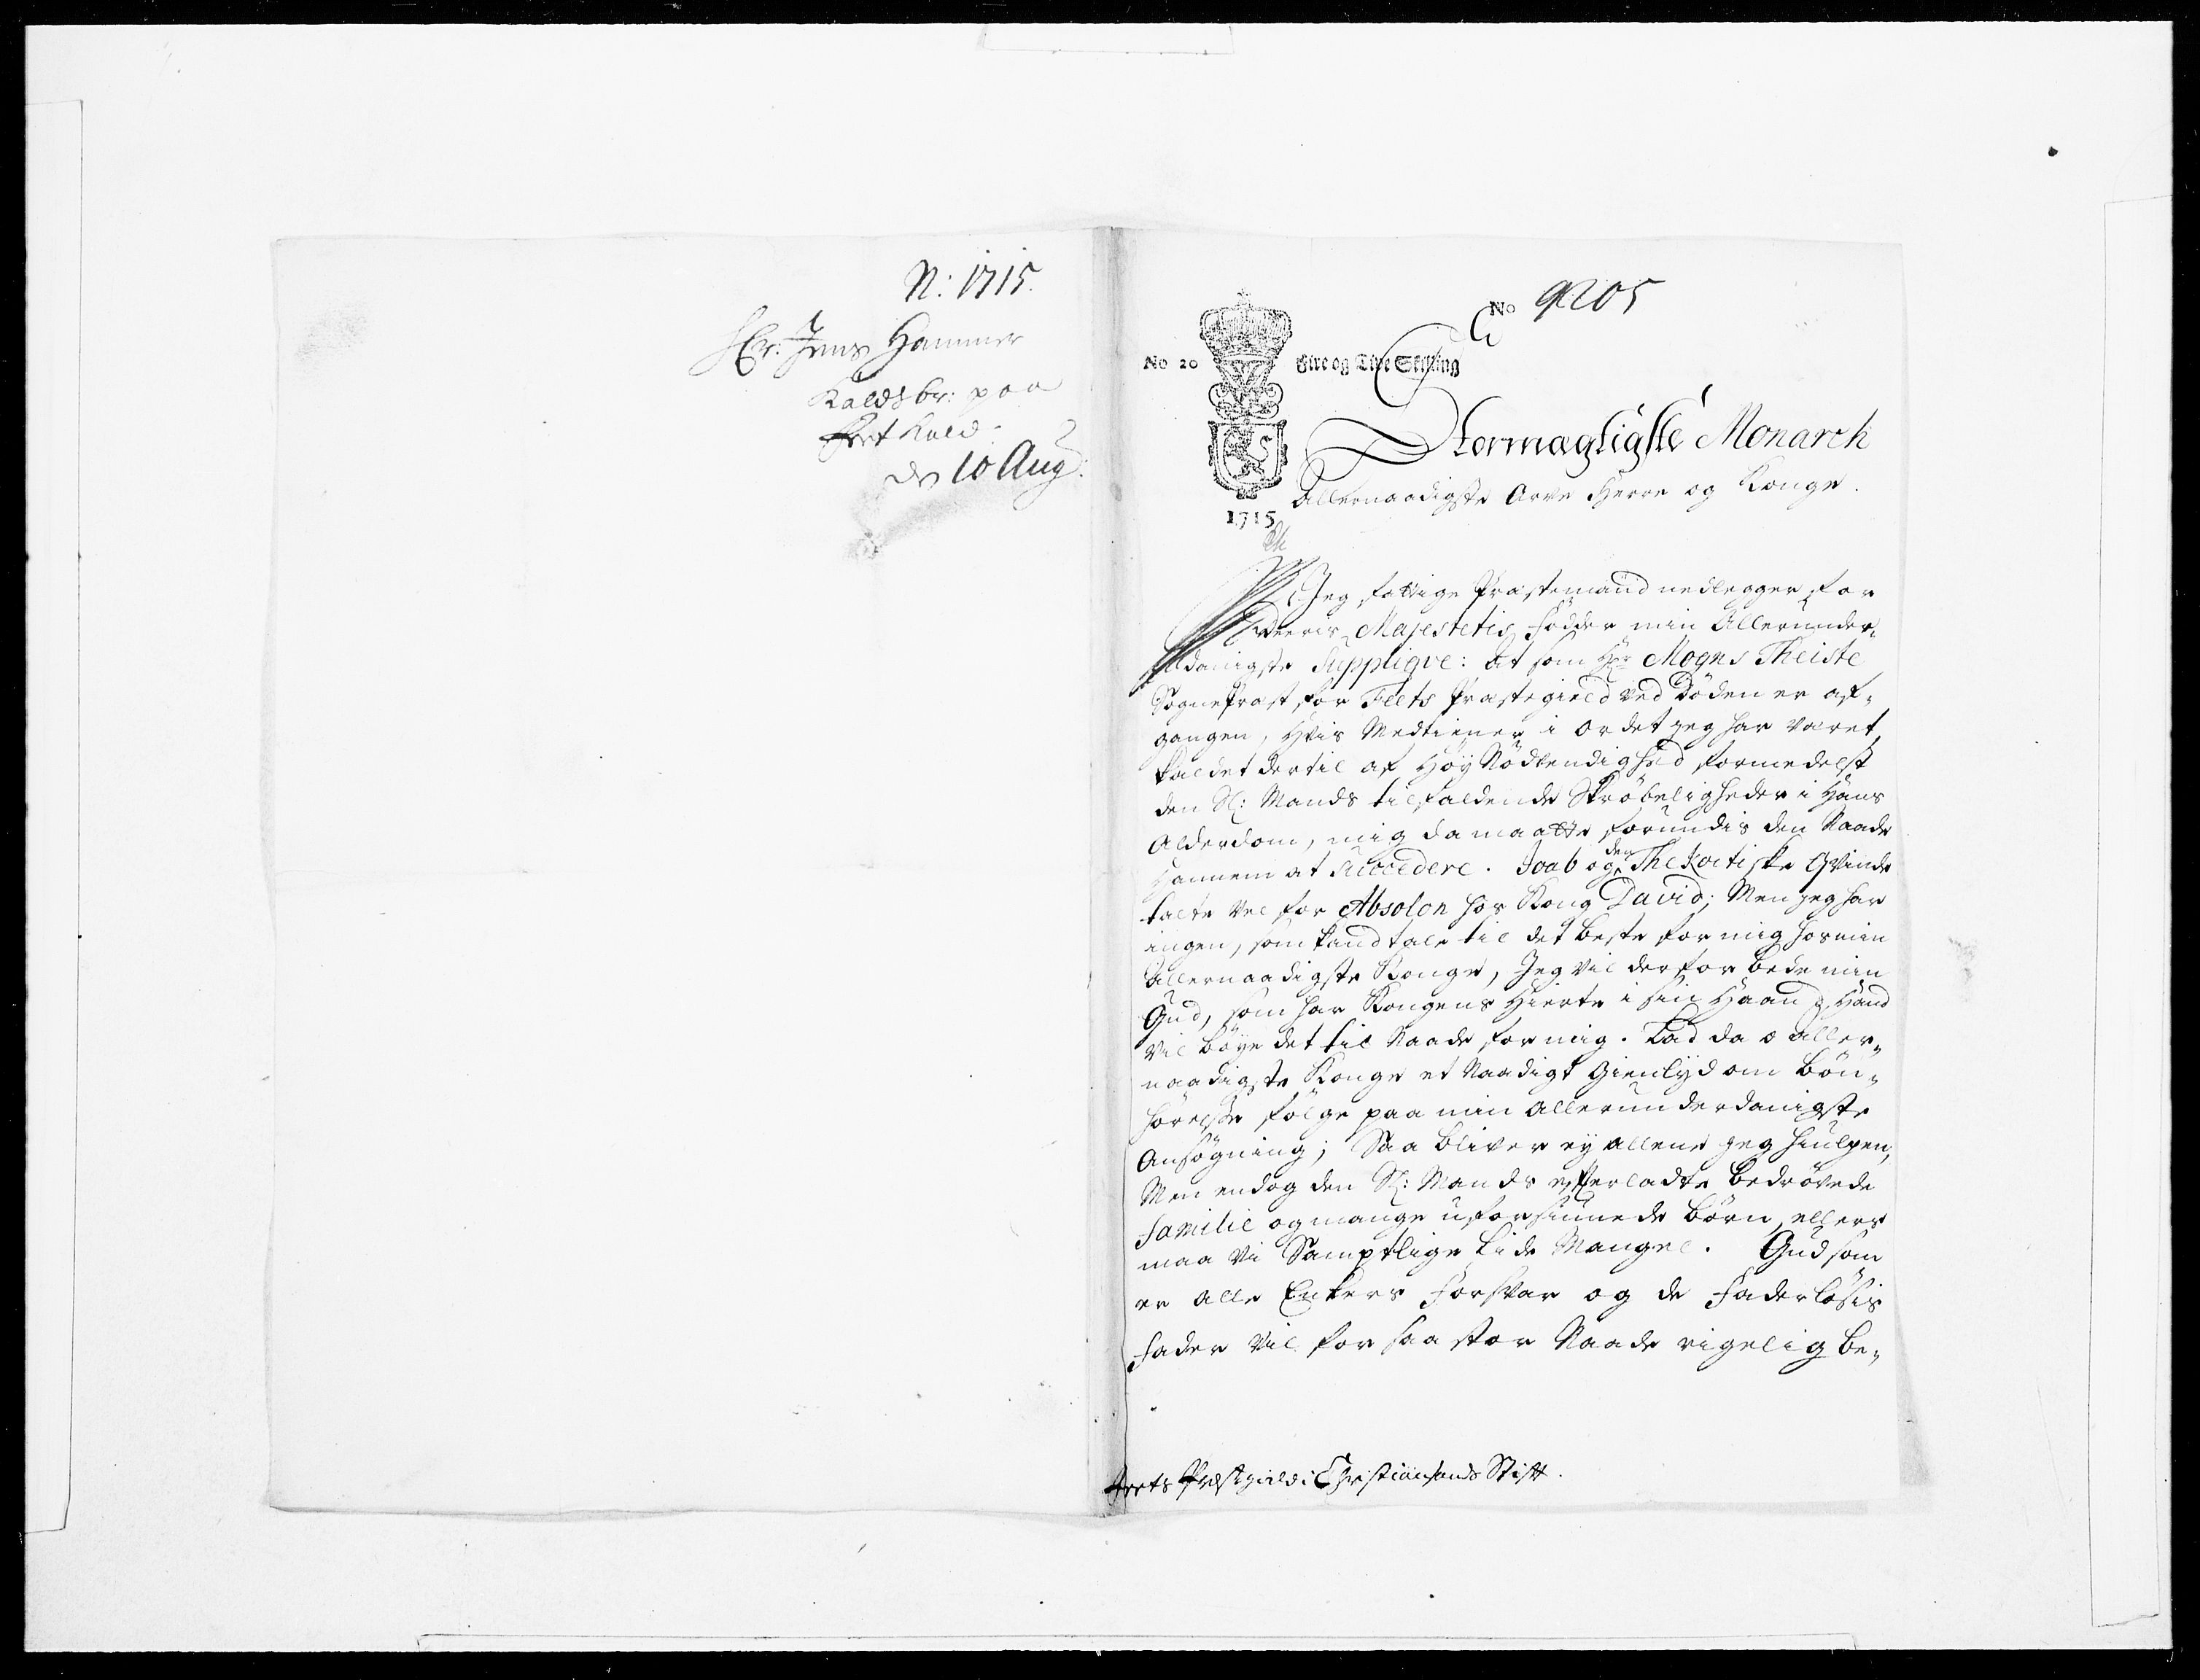 N: 1715.
Hr: Jens Hammer
Kaldsbr: paa
Feet Kald.
ds 10 Aug:
No 9205
No 20
Fire og Tive Skilling
1715
Stormægtigste Monarch
Allernaadigste Arve Herre og Konge.
Jeg fattige Præstemand nedlegger for
Deeris Majestetis Födder min Allerunder-
danigste Supplique: At som Hr Mogns Theiste
Sognepræst for Feets Præstegield ved Döden er af-
gangen, Hvis Medtiener i Ordet jeg har været,
kaldet dertil af Höy Nödvendighed formedelst
den Sl: Mands tilfaldende Skröbeligheder i Hans
Alderdom, mig da maatte forundis den Naade
Hannem at Succedere. Joab og den Thekoitiske Qvinde
talte vel for Absolon hos Kong David; Men jeg har
ingen, som kand tale til det beste for mig hos min
Allernaadigste Konge, Jeg vil derfor bede min
Gud, som har Kongens Hierte i sin Haand, Hand
vil böye det til Naade for mig. Lad da o Aller-
naadigste Konge et Naadigt Gienlyd om Bön-
hörelse fölge paa min allerunderdanigste
Ansögning; Saa bliver ey allene jeg hiulpen,
Men endog den Sl: Mands efterladte bedrövede
Familie og mange uforsiunede Börn, ellers
maa Vi Samptlige lide Mangel. Gud som
er alle Enkers Forsvar og de Faderlösis
Fader vil for saa stor Naade rigelig be-
Feets Præstegield i Christiansands Stift.